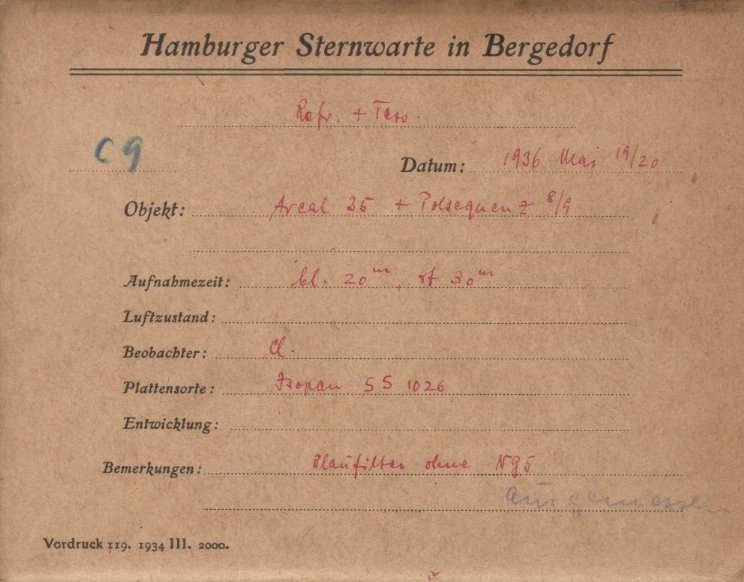 Hamburger Sternwarte in Bergedorf
Refr. + Tess.
C9
Datum: 1936 Mai 19/20
Objekt: Areal 35 + Polsequenz 8/9
Aufnahmezeit: bl. 20ᵐ, rt 30ᵐ
Luftzustand:
Beobachter: Cl.
Plattensorte: Isopan SS 1026
Entwicklung:
Bemerkungen: Blaufilter ohne NG5
ausgemessen
Vordruck 119. 1934 III. 2000.